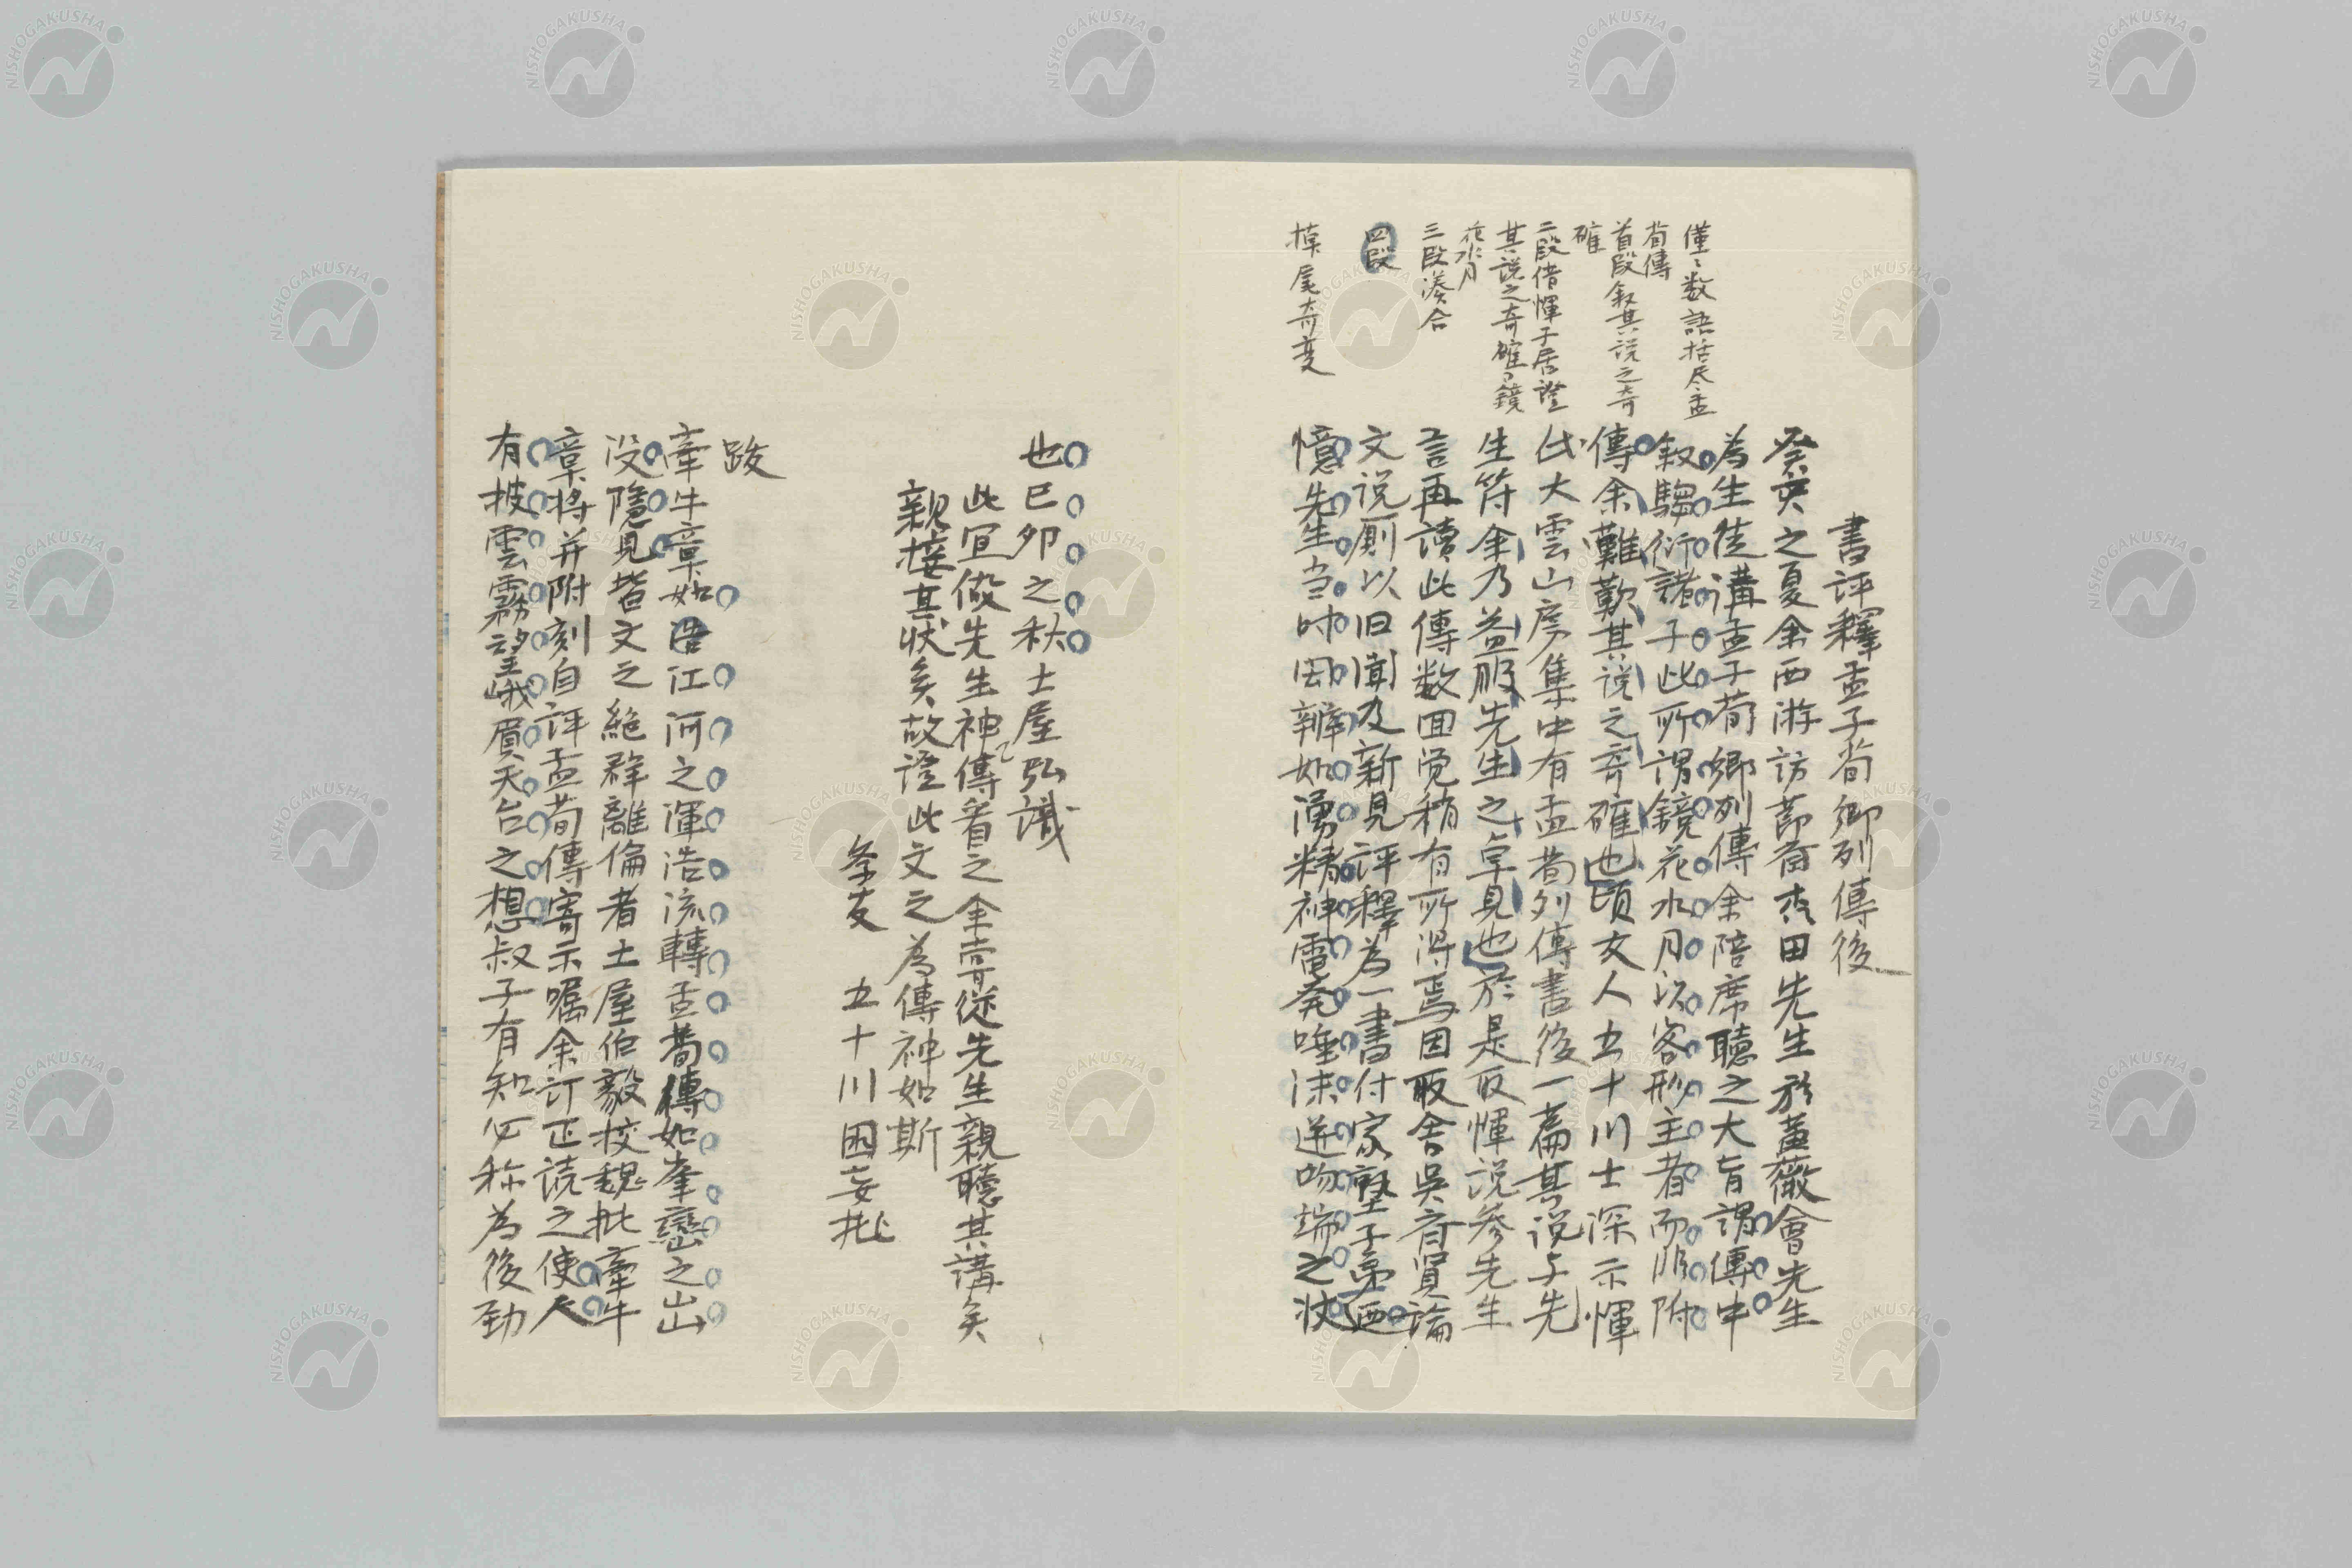 書評釋孟子荀卿列傳後
癸亥之夏余西游訪節齋森田先生於薑薇會先生
為生徒講孟子荀卿列傳余陪席聽之大旨謂傳中
叙騶衍諸子此所謂鏡花水月以客形主者而非附
傳余難歎其説之奇確也頃友人五十川士深示惲
氏大雲山房集中有孟荀列傳書後一篇其説与先
生符余乃益服先生之卓見也於是取惲説參先生
言再讀此傳数回覚稍有所得焉因取舍吳斉賢論
文説劂以旧聞及新見評釋為一書付家塾子弟廼
憶先生当時因辨如湧精神電発唾沫迸吻端之状
僅〻数語括尽孟
荀傳
首段叙其説之奇
確
二段借惲子居證
其説之奇確〻鏡
花水月
三段湊合
四段
掉尾奇变
也己卯之秋士屋弘識
此宜倣先生神傳看之余嘗從先生親聽其講矣
親接其状矣故證此文之為傳神如斯
条友 五十川困妄批
跋
牽牛章如浩江河之渾浩流轉孟荀傳如峯巒之出
没隱見皆文之絶群離倫者土屋伯毅挍魏批牽牛
章将并附刻自評孟荀傳寄示嘱余訂正読之使人
有披雲霧望峨眉天台之想叔子有知必称為後勁